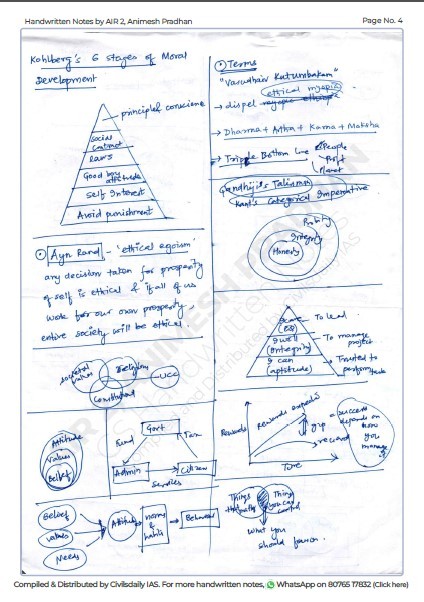 Handwritten Notes by AIR 2, Animesh Pradhan
Page No. 4
Kohlberg's 6 stages of Moral
Development
principled conscience
social
contract
Laws
Good boy
attitude
Self Interest
Avoid punishment
Ayn Rand - 'ethical egoism'
any decision taken for prosperity
of self is ethical & if all of us
work for our own prosperity
entire society will be ethical.
societal
values
Religion
UCC
Constitution
Attitude
Values
Belief
Govt
Fund
Tax
Admin
Citizen
Services
Belief
Values
Needs
Attitude
norms
&
habits
Behaviour
Terms
"Vasudhaiv Kutumbakam"
ethical myopia
→ dispel
→ Dharma + Artha + Kama + Moksha
→ Triple Bottom Line
People
Profit
Planet
Gandhiji's Talisman
Kant's Categorical Imperative
Probity
Integrity
Honesty
(EQ)
To lead
I will
(integrity)
To manage
project
I can
(aptitude)
Trusted to
perform task
Rewards
Rewards expected
gap
reward
Time
success
depends on
how
you
manage
Things
that matter
Things
you can
control
What you
should focus on.
Compiled & Distributed by Civilsdaily IAS. For more handwritten notes, WhatsApp on 80765 17832 (Click here)